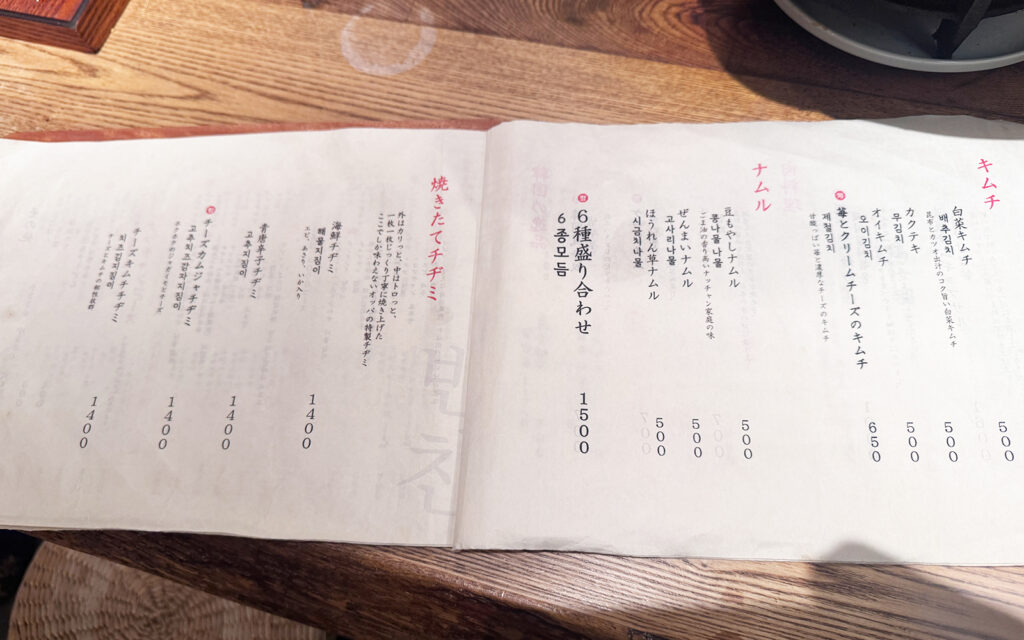 キムチ
白菜キムチ
배추김치
昆布とカツオ出汁のコク旨い白菜キムチ
500
カクテキ
무김치
500
オイキムチ
오이김치
500
苺とクリームチーズのキムチ
제철김치
甘酸っぱい苺と濃厚なチーズのキムチ
650
ナムル
豆もやしナムル
콩나물나물
ごま油の香り高いナッチャン家庭の味
500
ぜんまいナムル
고사리나물
500
ほうれん草ナムル
시금치나물
500
6種盛り合わせ
6종모듬
1500
焼きたてチヂミ
外はカリっと、中はトロっと、
一枚一枚じっくり丁寧に焼き上げた
ここでしか味わえないオッパの特製チヂミ
海鮮チヂミ
해물지짐이
エビ、あさり、いか入り
1400
青唐辛子チヂミ
고추지짐이
1400
チーズカムジャチヂミ
고추치즈감자지짐이
ホクホクのジャガイモとチーズ
1400
チーズキムチチヂミ
치즈김치지짐이
チーズとキムチの相性抜群
1400